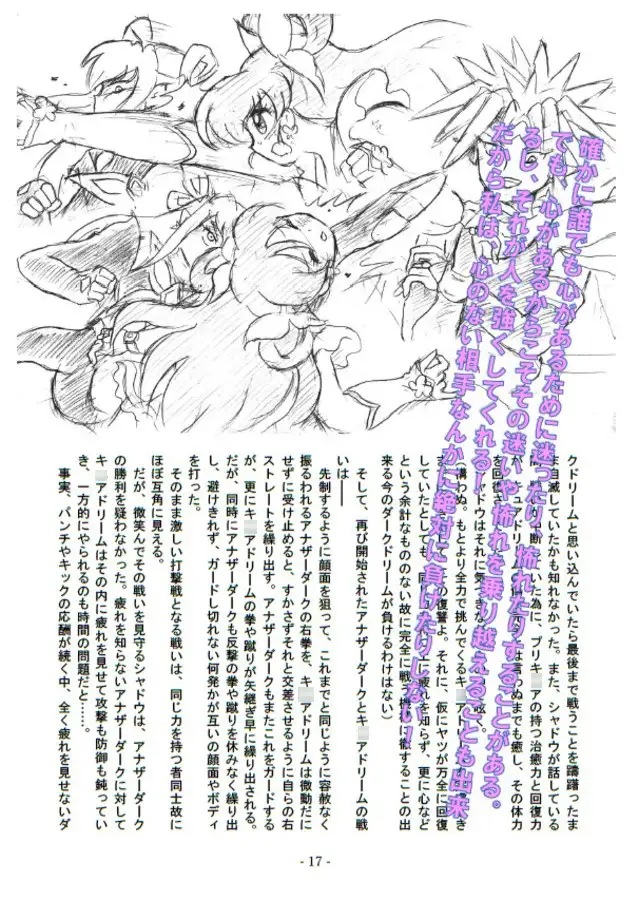 確かに誰でも心があるために迷ったり、怖れたりすることがある。
でも、心があるからこそその迷いや怖れを乗り越えることも出来
るし、それが人を強くしてくれる！
だから私は、心のない相手なんかに絶対に負けたりしない！
クドリームと思い込んでいたら最後まで戦うことを躊躇ったま
ま自滅していたかも知れなかった。また、シャドウが話している
いた為に、プリキ アの持つ治癒力と回復力
言わぬまでも癒し、その体力
を回復さ
シャドウはそれに気
構わぬ。もとより全力で挑んでくるキ アドリ
の復讐よ。それに、仮にヤツが万全に回復
していたとしても、同じ
疲れを知らず、更に心など
という余計なもののない故に完全に戦う機械に徹することの出
来る今のダークドリームが負けるわけはない）
そして、再び開始されたアナザーダークとキ アドリームの戦
いは――
先制するように顔面を狙って、これまでと同じように容赦なく
振るわれるアナザーダークの右拳を、キ アドリームは微動だに
せずに受け止めると、すかさずそれと交差させるように自らの右
ストレートを繰り出す。アナザーダークもまたこれをガードする
が、更にキ アドリームの拳や蹴りが矢継ぎ早に繰り出される。
だが、同時にアナザーダークも反撃の拳や蹴りを休みなく繰り出
し、避けきれず、ガードし切れない何発かが互いの顔面やボディ
を打った。
そのまま激しい打撃戦となる戦いは、同じ力を持つ者同士故に
ほぼ互角に見える。
だが、微笑んでその戦いを見守るシャドウは、アナザーダーク
の勝利を疑わなかった。疲れを知らないアナザーダークに対して
キ アドリームはその内に疲れを見せて攻撃も防御も鈍ってい
き、一方的にやられるのも時間の問題だと……。
事実、パンチやキックの応酬が続く中、全く疲れを見せないダ
- 17 -